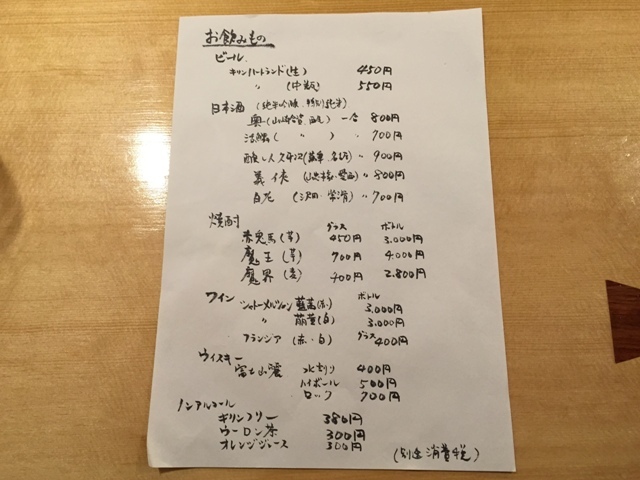 お飲みもの
ビール
キリンハートランド(生) 450円
〃 (中瓶) 550円
日本酒 (純米吟醸、特別純米)
奥(山崎合資、西尾) 一合 800円
(〃) 〃 700円
醸し人九平次(萬乗、名古屋) 〃 900円
義侠 (山忠本家・愛西) 〃 800円
白老 (澤田・常滑) 〃 700円
焼酎 グラス ボトル
赤兎馬(芋) 450円 3.000円
魔王(芋) 700円 4.000円
魔界(麦) 400円 2.800円
ワイン ボトル
シャトーメルシャン 藍茜(赤) 3.000円
〃 萌黄(白) 3.000円
フランジア (赤・白) グラス 400円
ウィスキー
富士山麓 水わり 400円
ハイボール 500円
ロック 700円
ノンアルコール
キリンフリー 380円
ウーロン茶 300円
オレンジジュース 300円
(別途消費税)